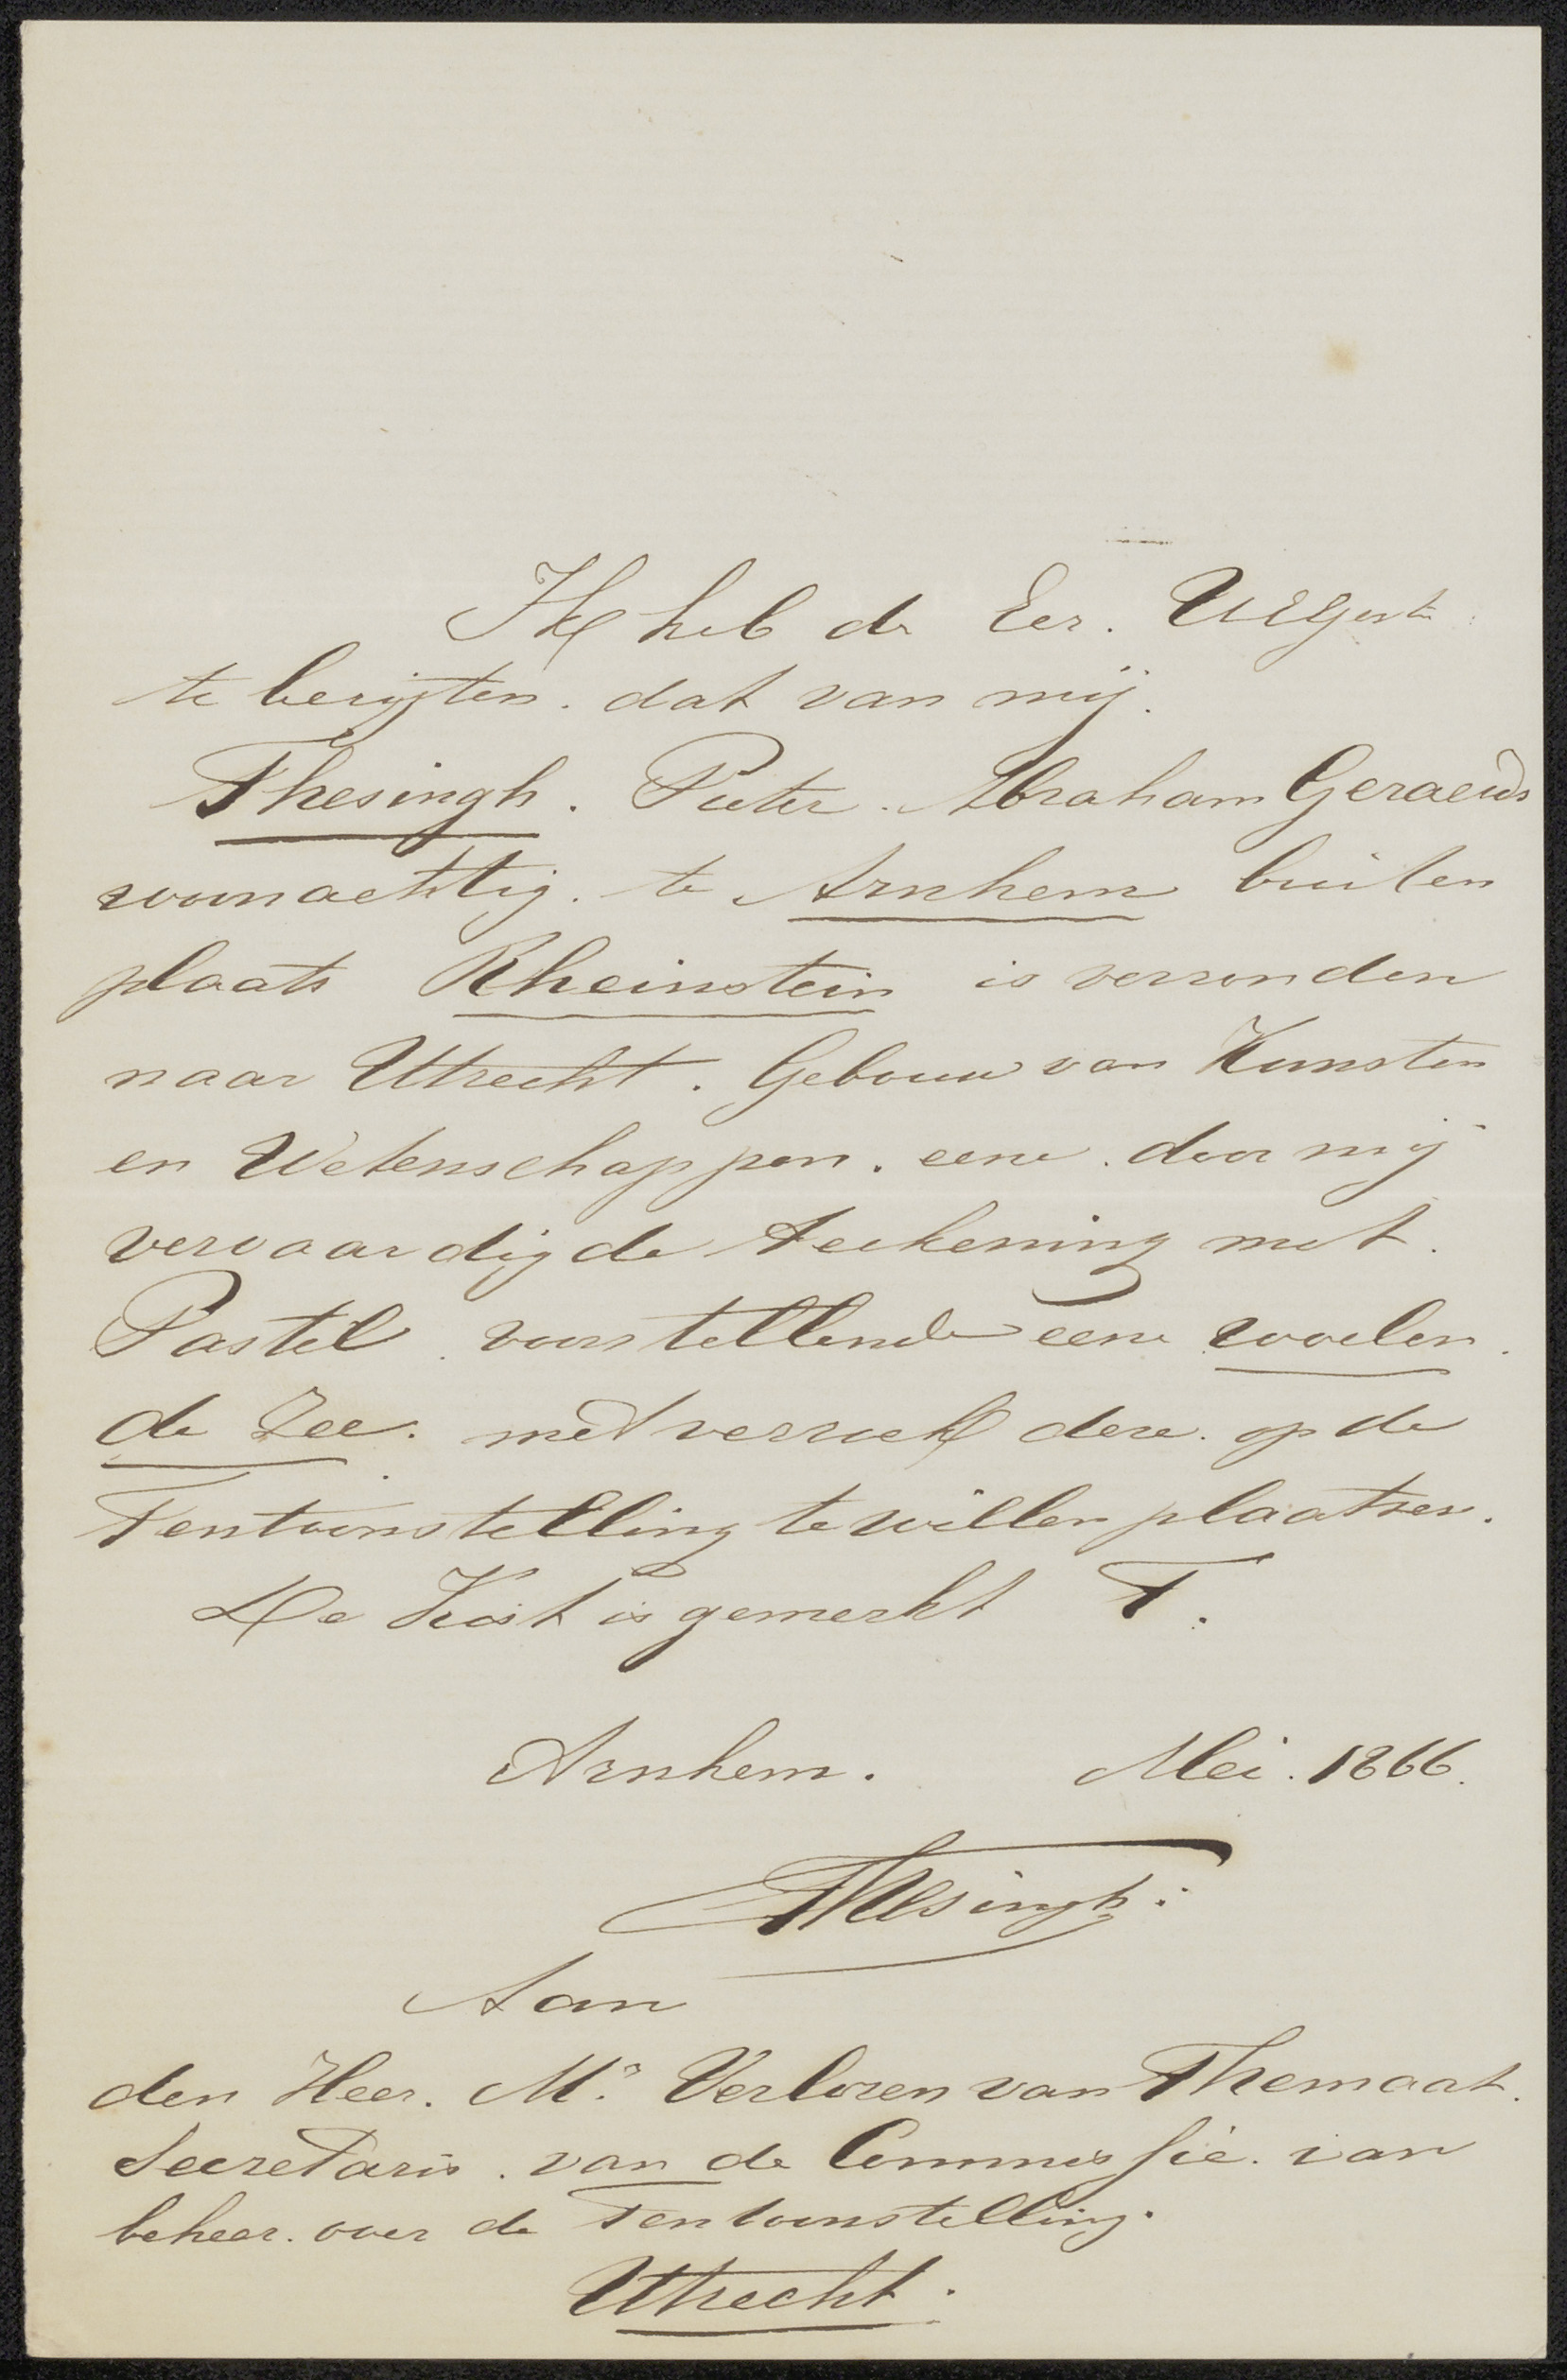 Ik heb de Eer. UEGestr:
te berigten. dat van mij.
Thesingh. Pieter. Abraham Geraerds
woonachttig. te Arnhem buiten
plaats Rheinstein is verzonden
naar Utrecht. Gebouw van Kunsten
en Wetenschappen. eene. door mij
vervaardigde teekening met.
Pastel. voorstellende eene woelen.
de Zee. met verzoek deze. op de
Tentoonstelling te willen plaatsen.
De Kist is gemerkt T.
Arnhem. Mei. 1866.
Thesingh:
Aan
den Heer. Mr. Verloren van Themaat.
Secretaris. van de Commissie. van
beheer. over de Tentoonstelling.
Utrecht.